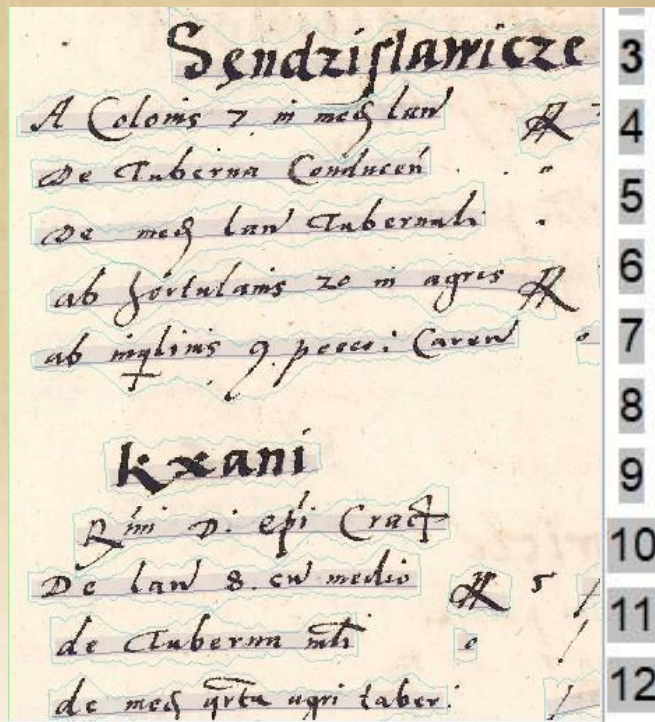 Sendzislawicze
A Colonis 7 in med lan
De Taberna Conducen
De med lan Tabernali
ab hortulanis 20 in agris
ab inqlinis 9 pecori Caren
kxani
Rmi D. epi Crac
De lan 8. cu medio 5
de Taberna
de med qrta agri taber:
3
4
5
6
7
8
9
10
11
12